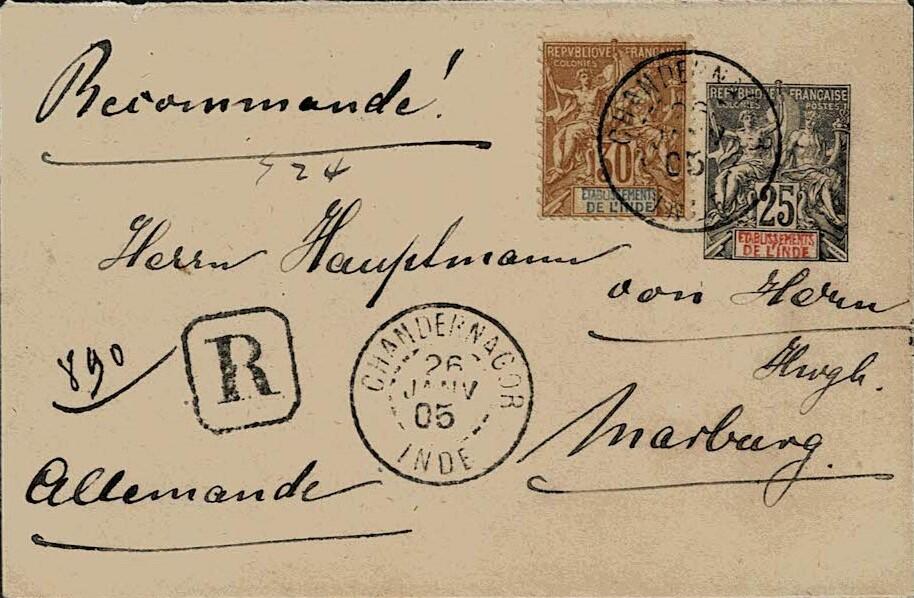 Recommandé!
524
REPUBLIQUE FRANÇAISE
COLONIES POSTES
30
ETABLISSEMENTS
DE L'INDE
CHANDERN
05
REPUBLIQUE FRANÇAISE
COLONIES POSTES
25
ETABLISSEMENTS
DE L'INDE
Herrn Hauptmann
von Horn
890
R
CHANDERNAGOR
26
JANV
05
INDE
Marburg.
Allemande